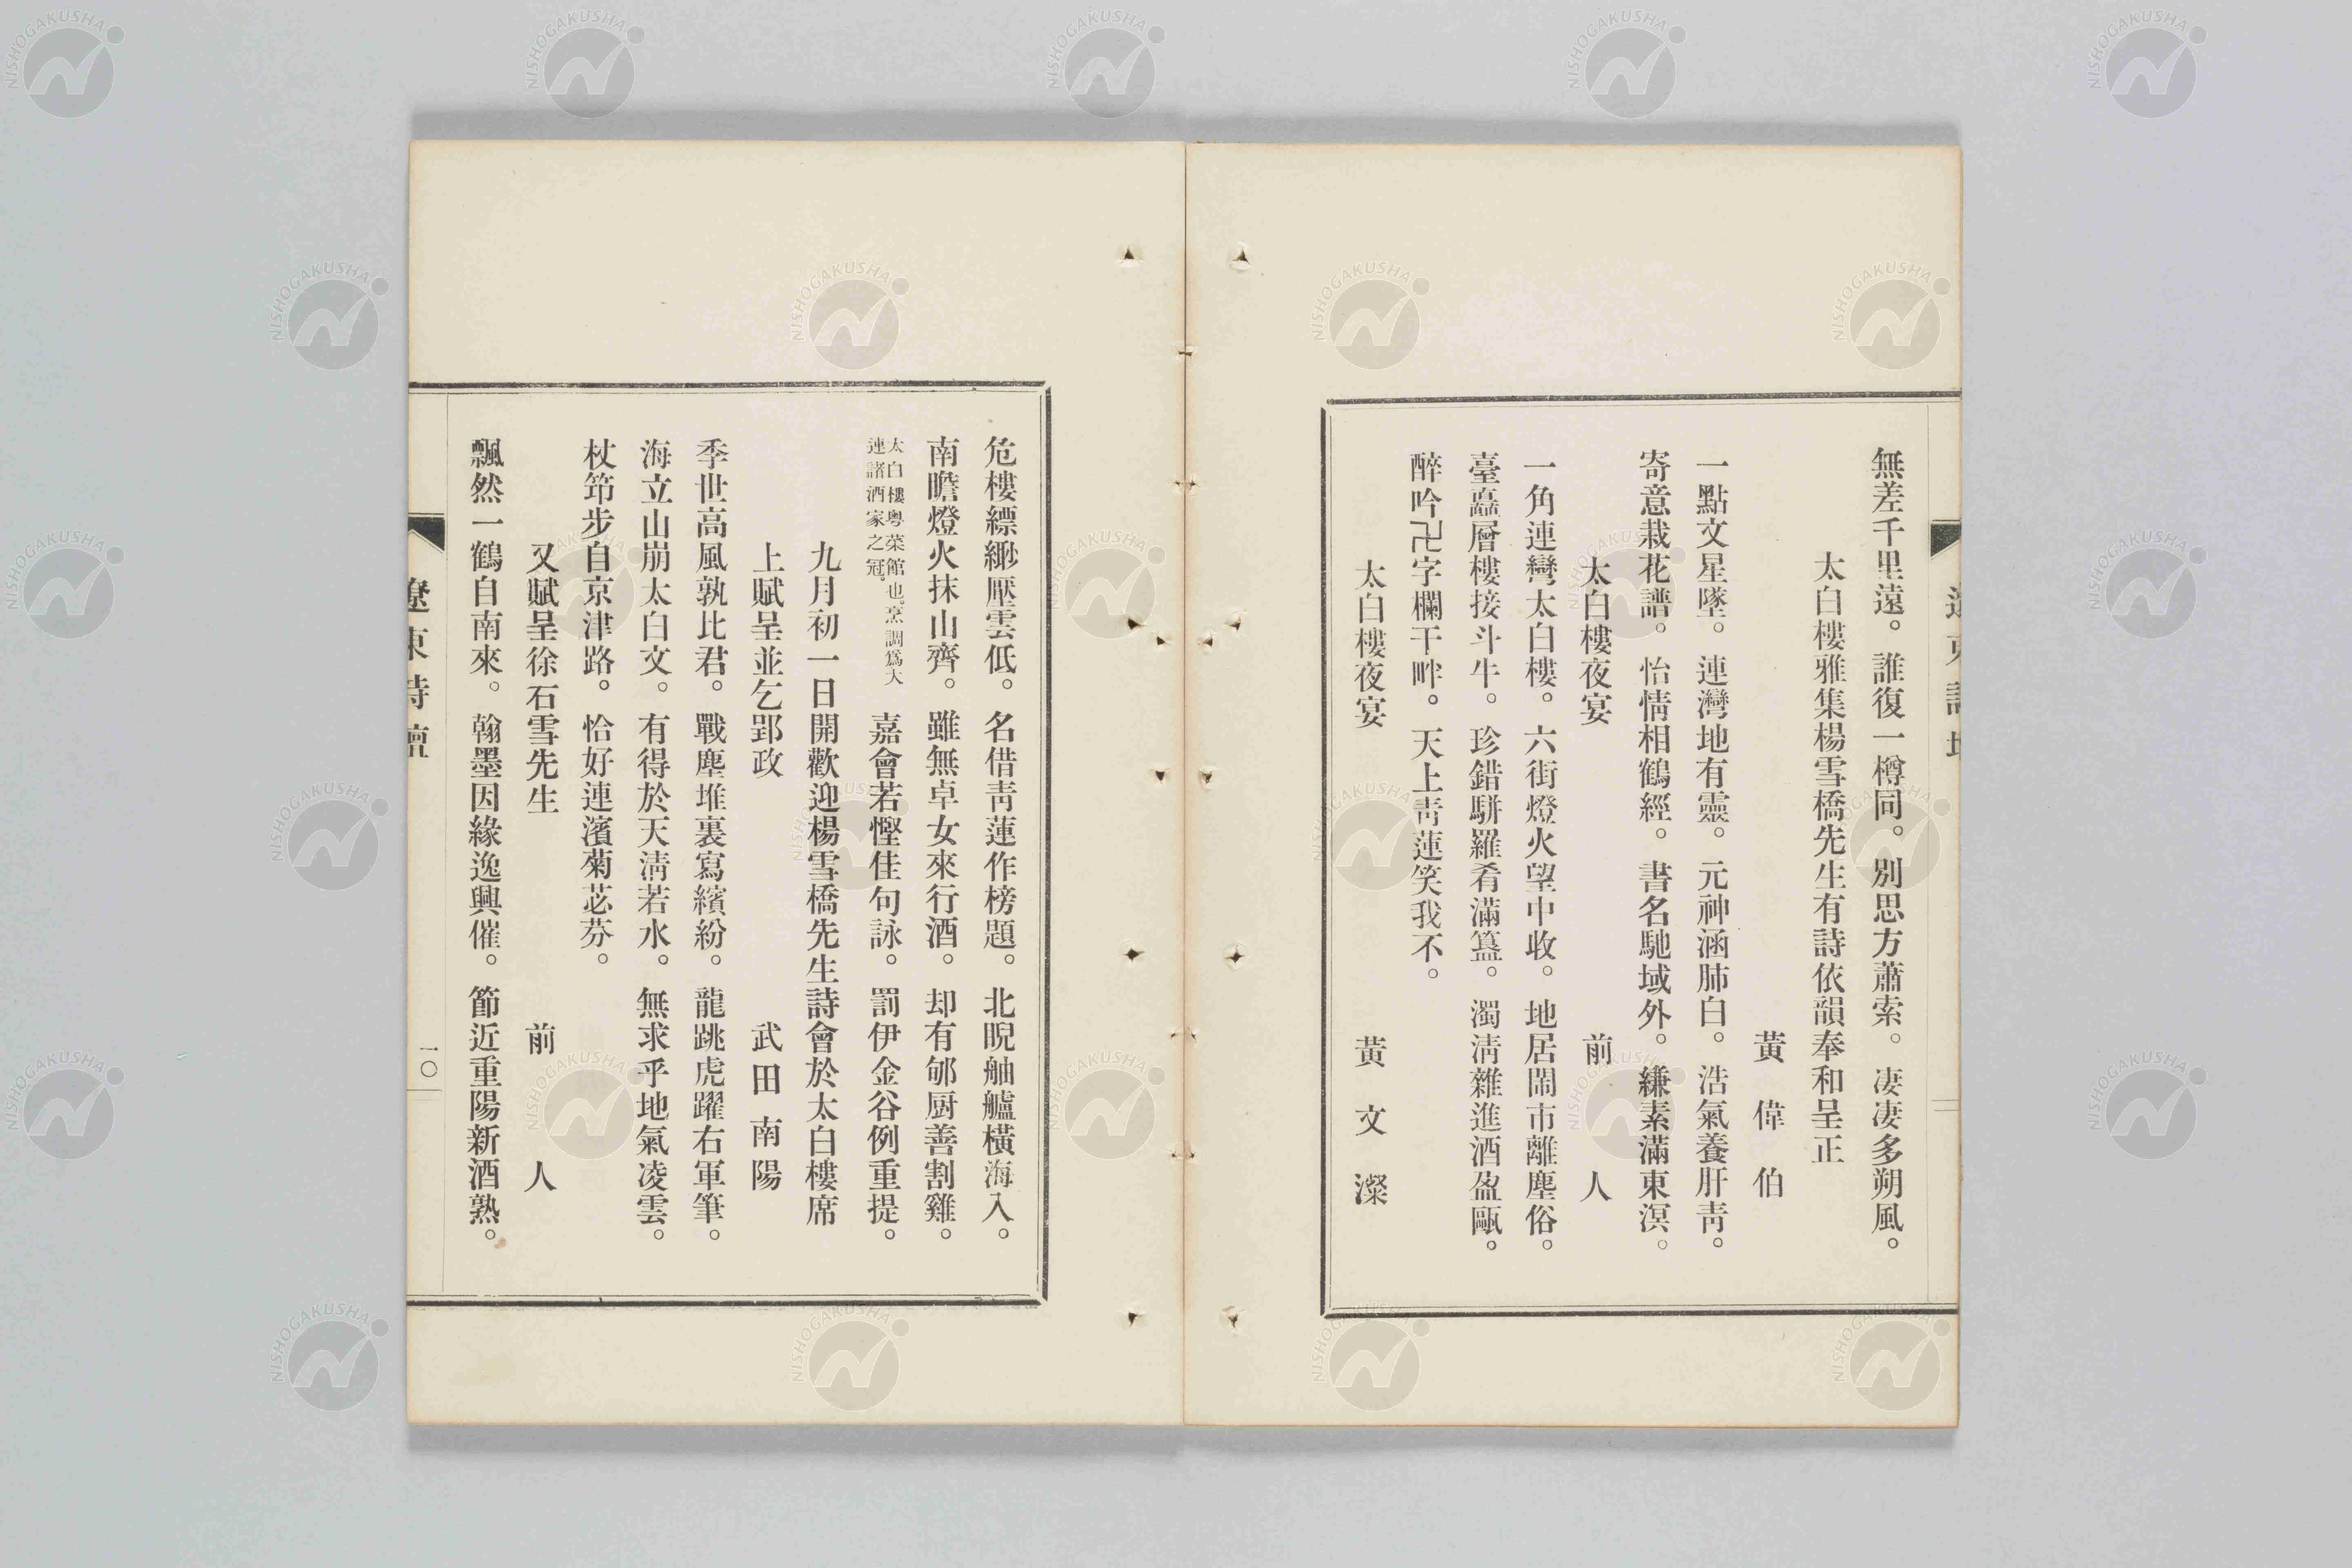 無差千里遠。誰復一樽同。別思方蕭索。凄凄多朔風。
太白樓雅集楊雪橋先生有詩依韻奉和呈正
黃偉伯
一點文星墜。連灣地有靈。元神涵肺白。浩氣養肝靑。
寄意栽花譜。怡情相鶴經。書名馳域外。縑素滿東溟。
太白樓夜宴 前人
一角連彎太白樓。六街燈火望中收。地居鬧市離塵俗。
臺矗層樓接斗牛。珍錯駢羅肴滿簋。濁淸雜進酒盈甌。
醉吟卍字欄干畔。天上靑蓮笑我不。
太白樓夜宴 黃文澯
危樓縹緲壓雲低。名借靑蓮作榜題。北睨舳艫橫海入。
南瞻燈火抹山齊。雖無卓女來行酒。却有郇厨善割雞。
太白樓粤菜館也。烹調爲大
連諸酒家之冠。
嘉會若慳佳句詠。罰伊金谷例重提。
九月初一日開歡迎楊雪橋先生詩會於太白樓席
上賦呈並乞郢政 武田南陽
季世高風孰比君。戰塵堆裏寫繽紛。龍跳虎躍右軍筆。
海立山崩太白文。有得於天淸若水。無求乎地氣凌雲。
杖笻步自京津路。恰好連濱菊苾芬。
又賦呈徐石雪先生 前人
飄然一鶴自南來。翰墨因緣逸興催。節近重陽新酒熟。
遼東詩壇
一〇
NISHOGAKUSHA